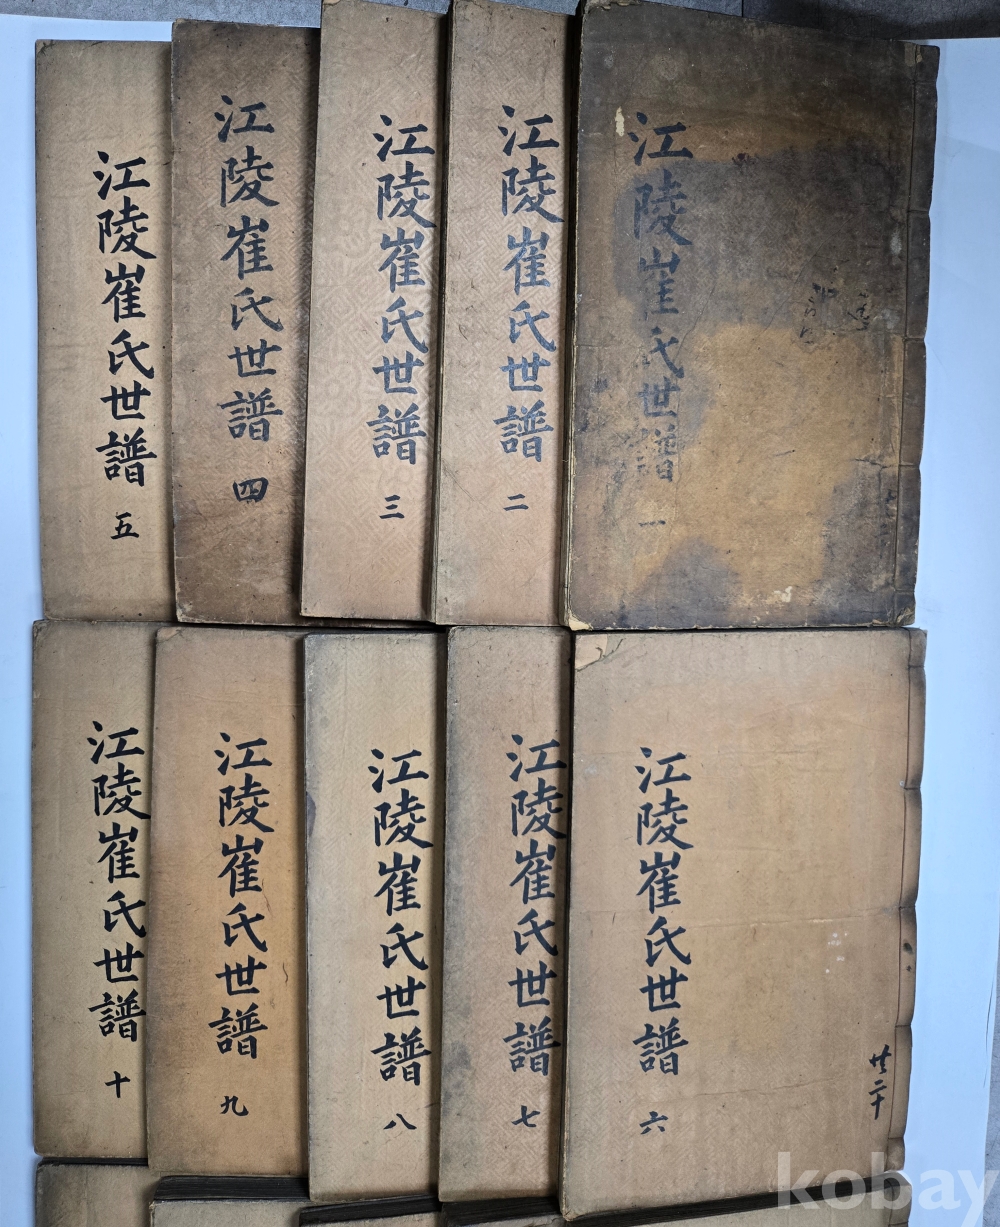 江陵崔氏世譜 一
江陵崔氏世譜 二
江陵崔氏世譜 三
江陵崔氏世譜 四
江陵崔氏世譜 五
江陵崔氏世譜 六
江陵崔氏世譜 七
江陵崔氏世譜 八
江陵崔氏世譜 九
江陵崔氏世譜 十
kobay